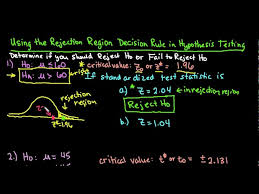 Using the Rejection Region Decision Rule in Hypothesis Testing
Determine if you should Reject Ho or Fail to Reject Ho
1) Ho: μ ≤ 60
* critical value: z₀ or z* = 1.96
Ha: μ > 60
If standardized test statistic is
a) * z = 2.04 ← in rejection region
rejection region
Reject Ho
b) z = 1.04
z*=1.96
2.) Ho: μ = 45
critical value: t* or t₀ = ± 2.131